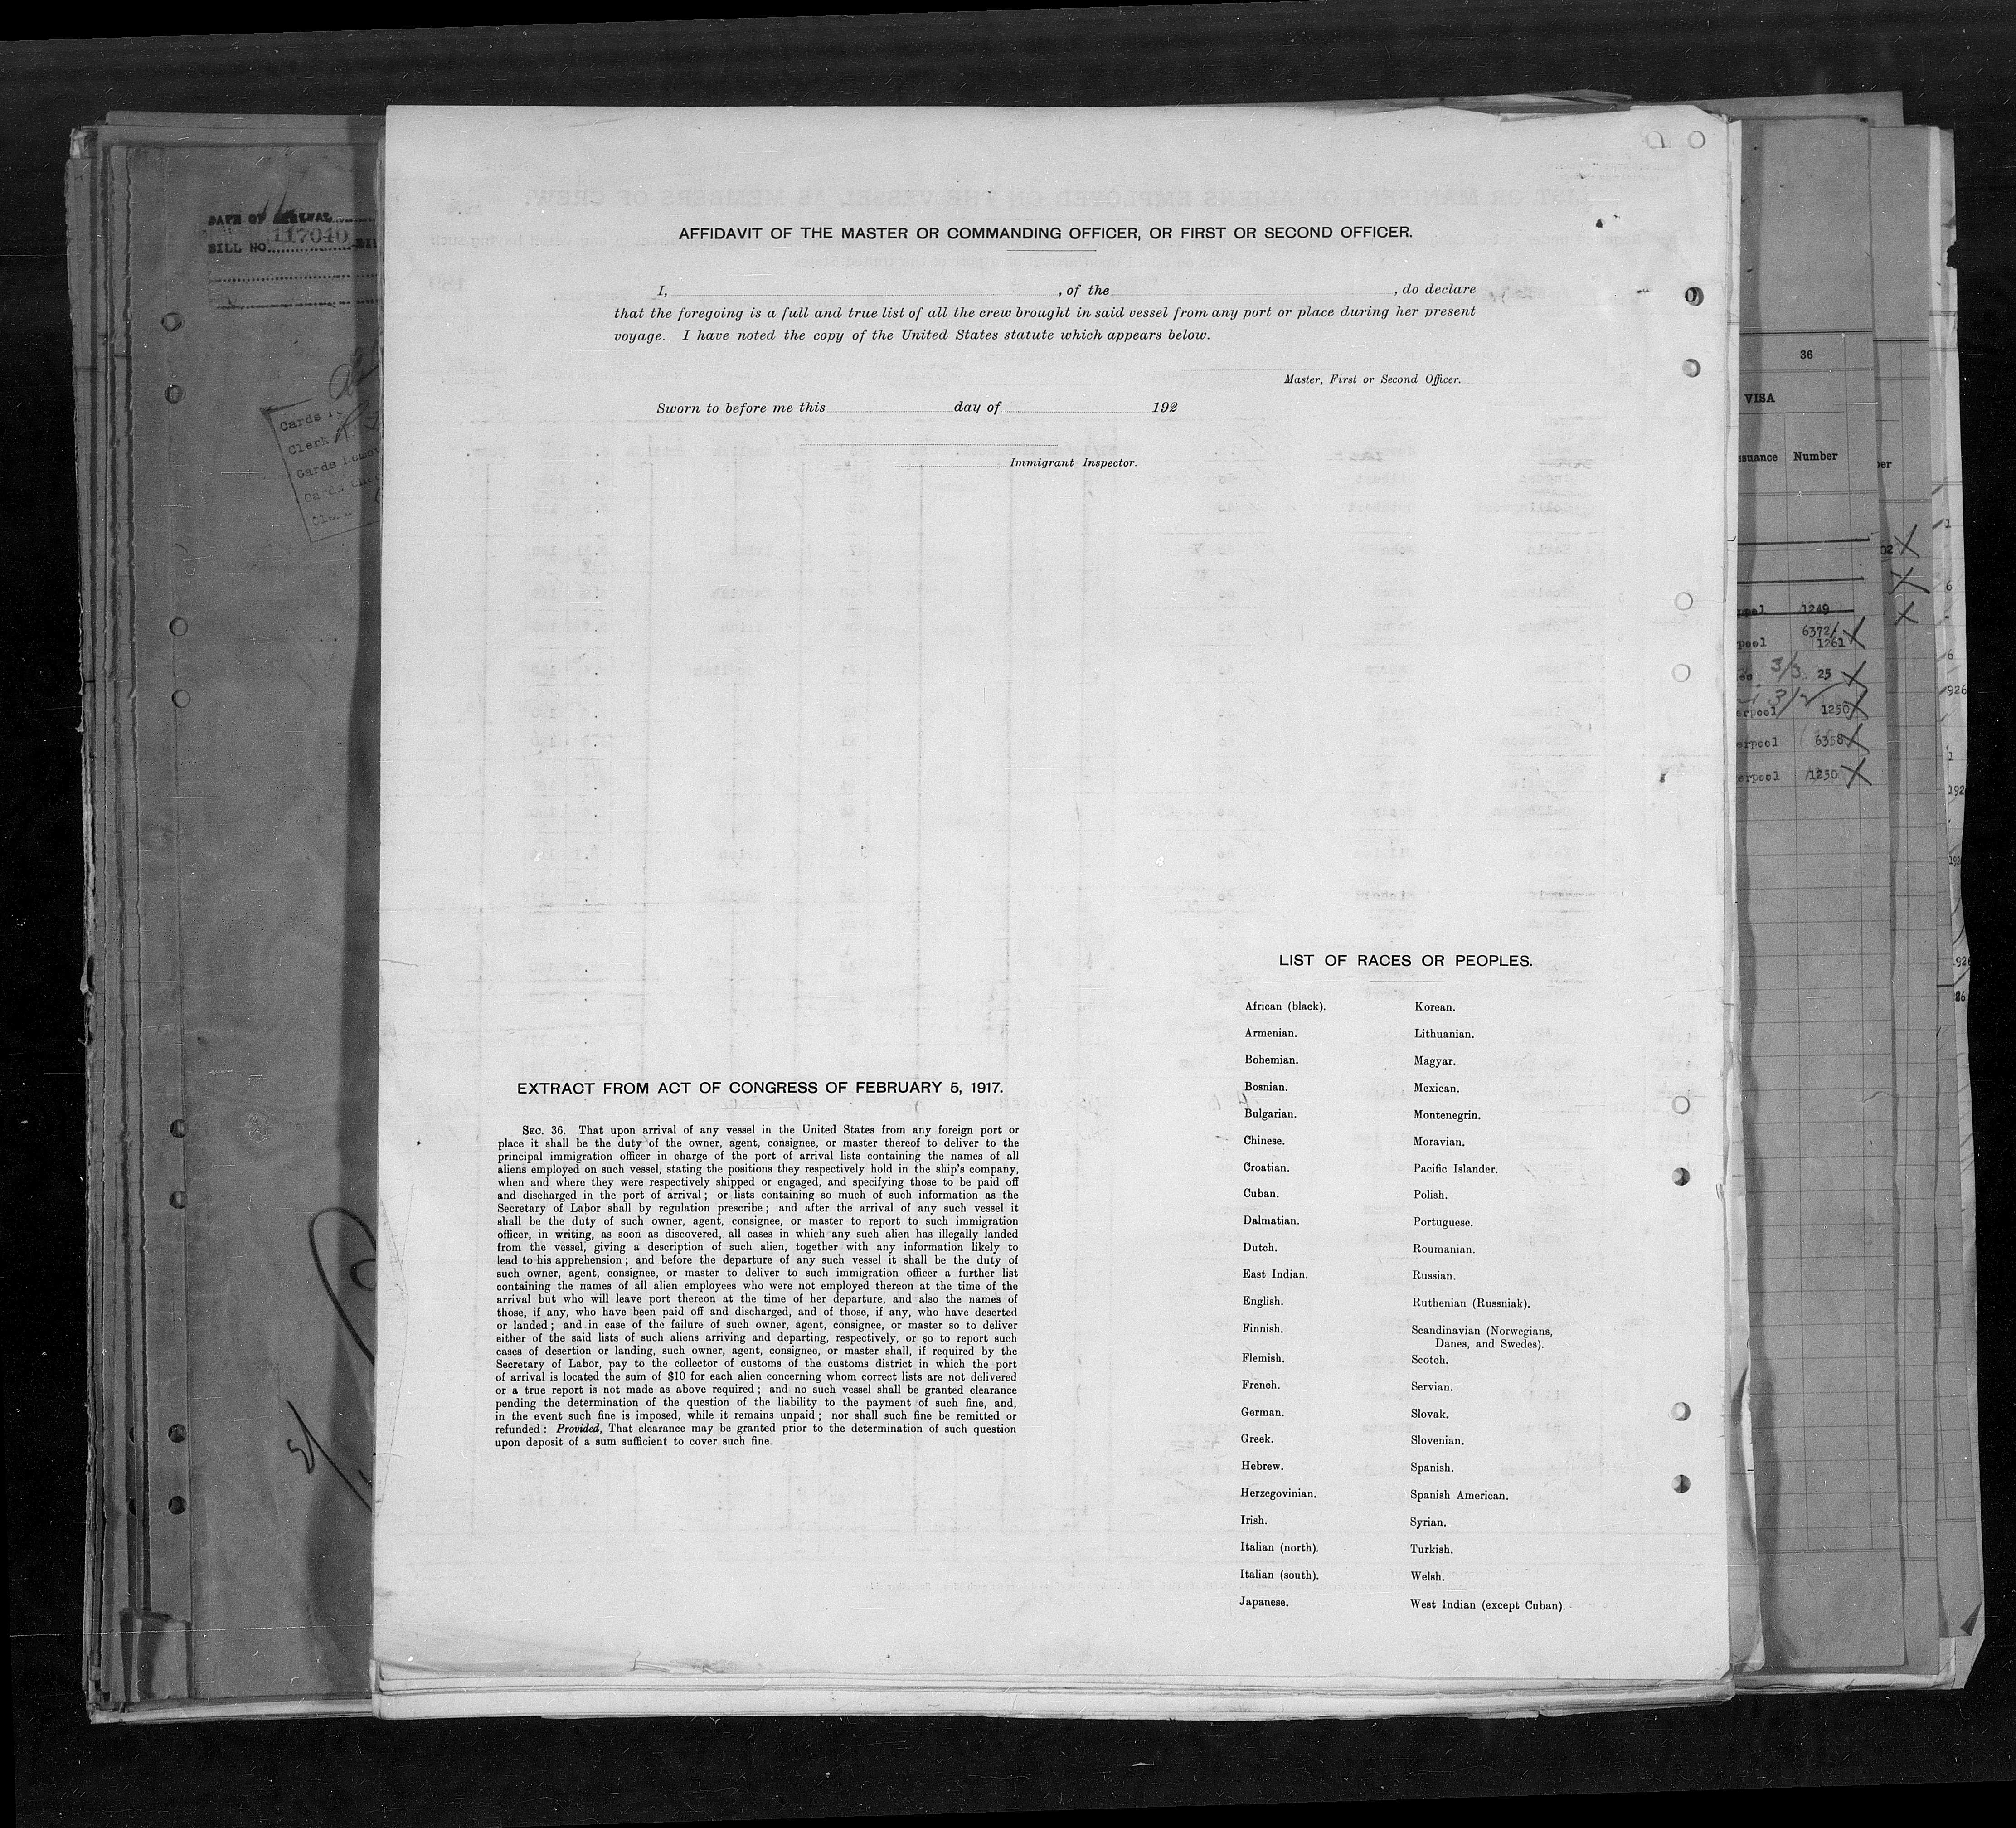 AFFIDAVIT OF THE MASTER OR COMMANDING OFFICER, OR FIRST OR SECOND OFFICER.
I, , of the , do declare
that the foregoing is a full and true list of all the crew brought in said vessel from any port or place during her present
voyage. I have noted the copy of the United States statute which appears below.
Master, First or Second Officer.
Sworn to before me this day of 192
Immigrant Inspector.
EXTRACT FROM ACT OF CONGRESS OF FEBRUARY 5, 1917.
SEC. 36. That upon arrival of any vessel in the United States from any foreign port or
place it shall be the duty of the owner, agent, consignee, or master thereof to deliver to the
principal immigration officer in charge of the port of arrival lists containing the names of all
aliens employed on such vessel, stating the positions they respectively hold in the ship's company,
when and where they were respectively shipped or engaged, and specifying those to be paid off
and discharged in the port of arrival; or lists containing so much of such information as the
Secretary of Labor shall by regulation prescribe; and after the arrival of any such vessel it
shall be the duty of such owner, agent, consignee, or master to report to such immigration
officer, in writing, as soon as discovered, all cases in which any such alien has illegally landed
from the vessel, giving a description of such alien, together with any information likely to
lead to his apprehension; and before the departure of any such vessel it shall be the duty of
such owner, agent, consignee, or master to deliver to such immigration officer a further list
containing the names of all alien employees who were not employed thereon at the time of the
arrival but who will leave port thereon at the time of her departure, and also the names of
those, if any, who have been paid off and discharged, and of those, if any, who have deserted
or landed; and in case of the failure of such owner, agent, consignee, or master so to deliver
either of the said lists of such aliens arriving and departing, respectively, or so to report such
cases of desertion or landing, such owner, agent, consignee, or master shall, if required by the
Secretary of Labor, pay to the collector of customs of the customs district in which the port
of arrival is located the sum of $10 for each alien concerning whom correct lists are not delivered
or a true report is not made as above required; and no such vessel shall be granted clearance
pending the determination of the question of the liability to the payment of such fine, and,
in the event such fine is imposed, while it remains unpaid; nor shall such fine be remitted or
refunded: Provided, That clearance may be granted prior to the determination of such question
upon deposit of a sum sufficient to cover such fine.
LIST OF RACES OR PEOPLES.
African (black). Korean.
Armenian. Lithuanian.
Bohemian. Magyar.
Bosnian. Mexican.
Bulgarian. Montenegrin.
Chinese. Moravian.
Croatian. Pacific Islander.
Cuban. Polish.
Dalmatian. Portuguese.
Dutch. Roumanian.
East Indian. Russian.
English. Ruthenian (Russniak).
Finnish. Scandinavian (Norwegians,
Danes, and Swedes).
Flemish. Scotch.
French. Servian.
German. Slovak.
Greek. Slovenian.
Hebrew. Spanish.
Herzegovinian. Spanish American.
Irish. Syrian.
Italian (north). Turkish.
Italian (south). Welsh.
Japanese. West Indian (except Cuban).
DATE OF
BILL NO. 117040
Cards
Clerk
Cards
Cards
36
VISA
Number
1249
6372/
1261
3/3 25
1250
6358
1230